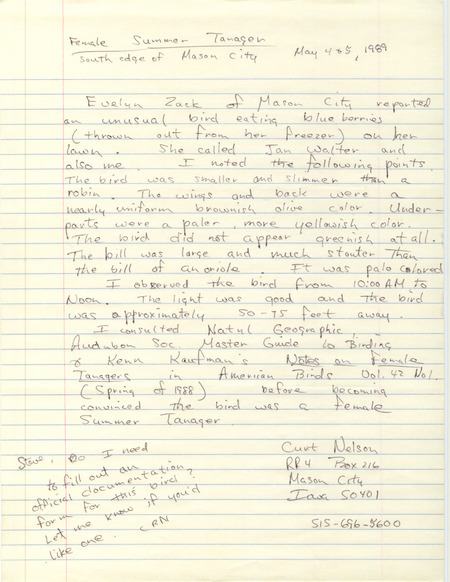 Female Summer Tanager
South edge of Mason City May 4 & 5, 1989
Evelyn Zack of Mason City reported
an unusual bird eating blueberries
(thrown out from her freezer) on her
lawn. She called Jan Walter and
also me. I noted the following points.
The bird was smaller and slimmer than a
robin. The wings and back were a
nearly uniform brownish olive color. Under-
parts were a paler, more yellowish color.
The bird did not appear greenish at all.
The bill was large and much stouter than
the bill of an oriole. It was pale colored
I observed the bird from 10:00 AM to
Noon. The light was good and the bird
was approximately 50-75 feet away.
I consulted Natul Geographic,
Audubon Soc. Master Guide to Birding
& Kenn Kaufman's Notes on Female
Tanagers in American Birds Vol. 42 No1.
(Spring of 1988) before becoming
convinced the bird was a Female
Summer Tanager.
Steve, Do I need
to fill out an
official documentation
form for this bird?
Let me know if you'd
like one. CRN
Curt Nelson
RR4 Box 216
Mason City
Iowa 50401
515-696-5600